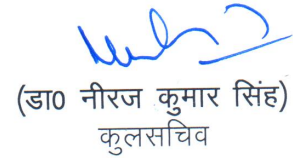 (डा0 नीरज कुमार सिंह)
कुलसचिव